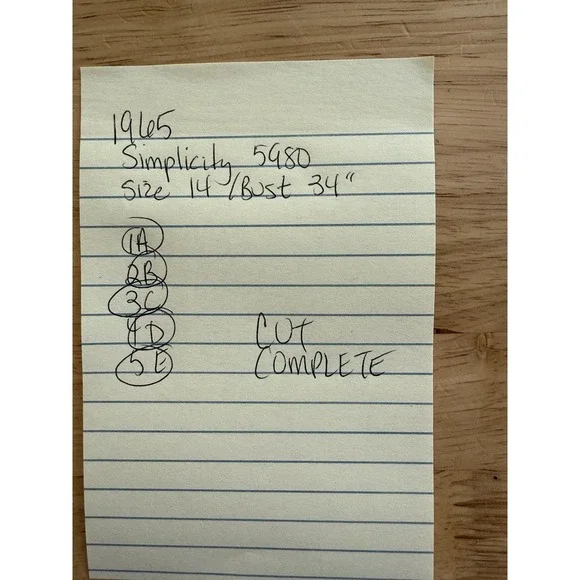 1965
Simplicity 5980
Size 14 /Bust 34"
1A
2B
3C
4D
5E
CUT
COMPLETE